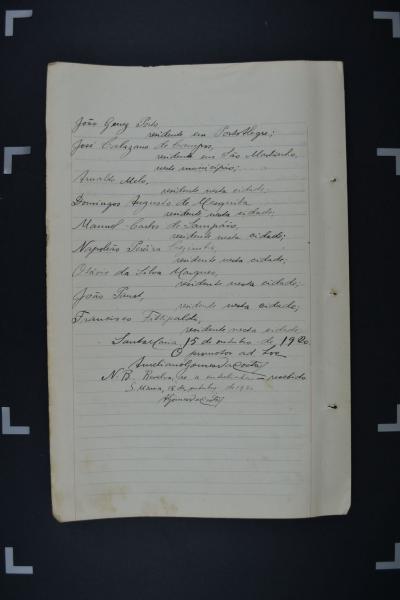 João Genez Porto,
residente em Porto Alegre;
José Calazans de Campos,
residente em São Martinho,
neste municipio;
Arnaldo Melo,
residente nesta cidade;
Domingos Augusto de Mesquita
residente nesta cidade;
Manuel Carlos de Sampaio,
residente nesta cidade;
Napoleão Pereira
residente nesta cidade;
Otávio da Silva Marques,
residente nesta cidade;
João
residente nesta cidade;
Francisco
residente nesta cidade
Santa Maria, 15 de outubro de 1920.
O promotor ad hoc
Aureliano Gomes da Costa
N. B. recebido
S. Maria, de outubro de 1920
AGomesdaCosta